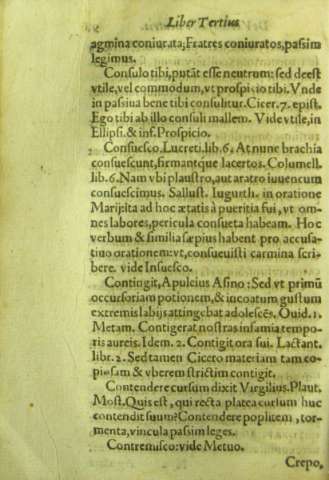 Liber Tertius
agmina coniurata; Fratres coniuratos, passim
legimus.
Consulo tibi, putāt esse neutrum: sed deest
vtile, vel commodum, vt prospicio tibi. Vnde
in passiua bene tibi consulitur. Cicer. 7. epist.
Ego tibi ab illo consuli mallem. Vide vtile, in
Ellipsi. & inf. Prospicio.
Consuesco. Lucreti. lib. 6. At nunc brachia
consuescunt, firmantque lacertos. Columell.
lib. 6. Nam vbi plaustro, aut aratro iuuencum
consuescimus. Sallust. Iugurth. in oratione
Marij: ita ad hoc ætatis à pueritia fui, vt om-
nes labores, pericula consueta habeam. Hoc
verbum & similia sæpius habent pro accusa-
tiuo orationem: vt, consueuisti carmina scri-
bere. vide Insuesco.
Contingit, Apuleius Asino: Sed vt primū
occursoriam potionem, & incoatum gustum
extremis labijs attingebat adolescēs. Ouid. 1.
Metam. Contigerat nostras infamia tempo-
ris aureis. Idem. 2. Contigit ora sui. Lactant.
libr. 2. Sed tamen Cicero materiam tam co-
piosam & vberem strictim contigit.
Contendere cursum dixit Virgilius. Plaut.
Most. Quis est, qui recta platea cursum huc
contendit suum? Contendere poplitem, tor-
menta, vincula passim leges.
Contremisco: vide Metuo.
Crepo,